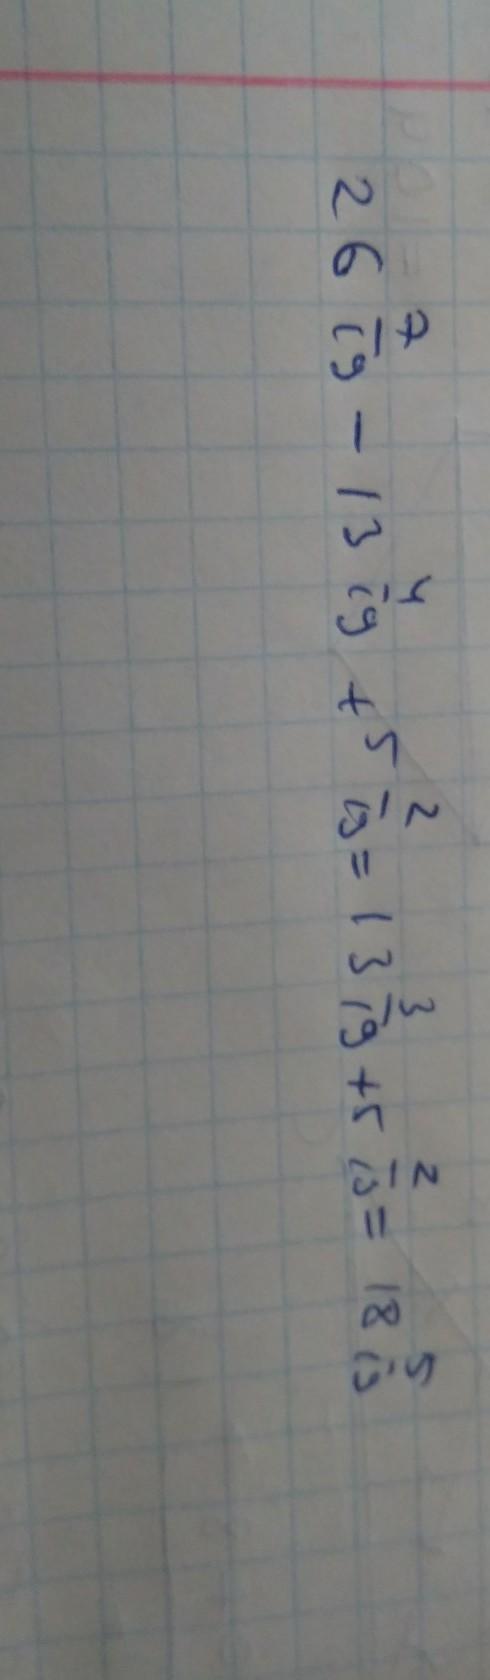 26 7/19 - 13 4/19 + 5 2/19 = 13 3/19 + 5 2/19 = 18 5/19